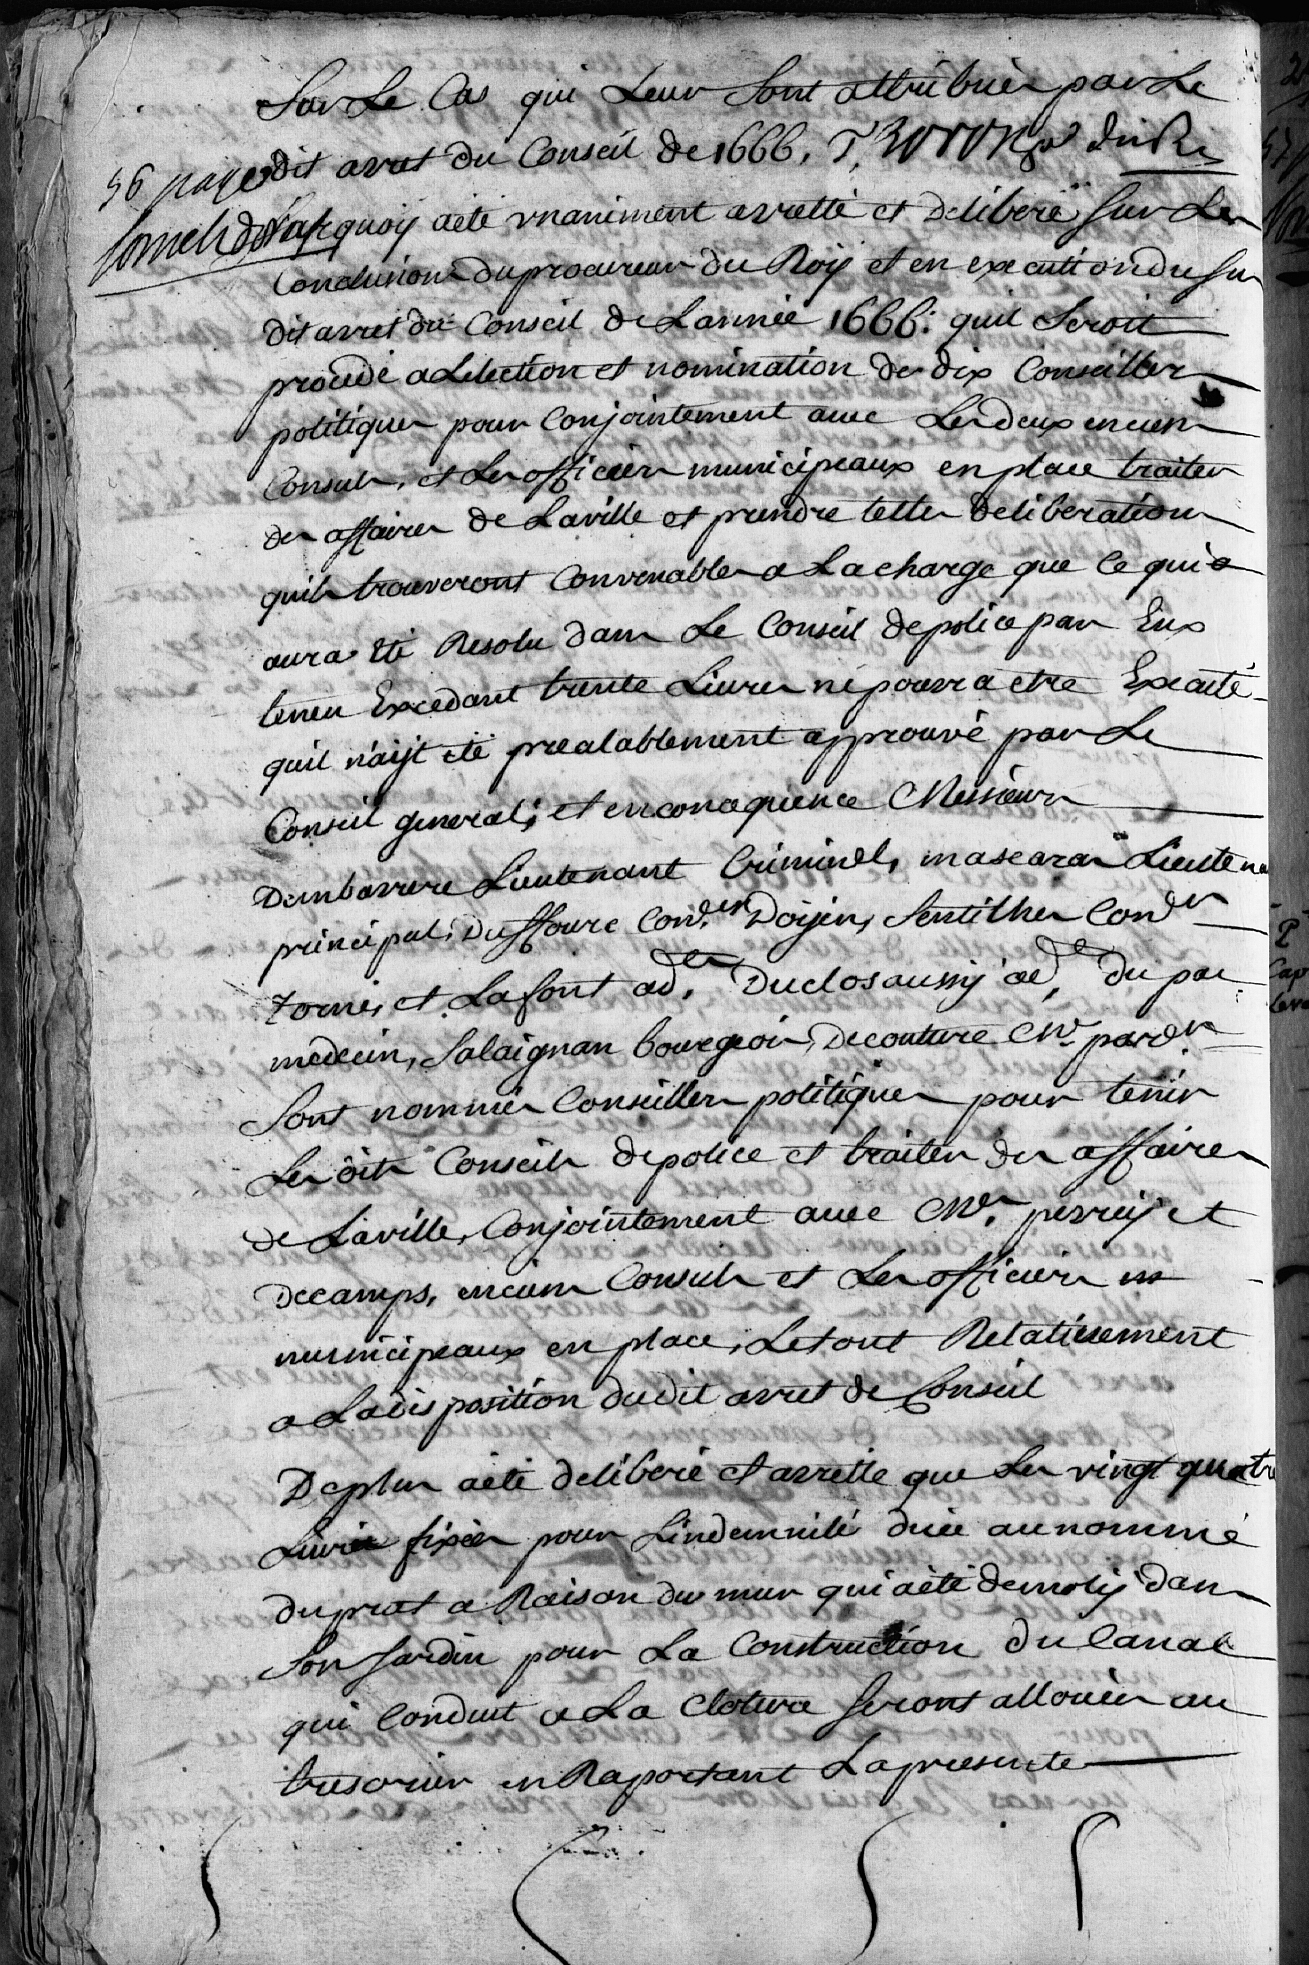 Sur Le Cas qui Leur Sont attribuér par Le
56 page dit arret du Conseil de 1666.
Sur quoy a eté unaniment arretté et deliberé sur Les
Conclusions du procureur du Roy et en execution du su
dit arret du Conseil de L'année 1666: quil Seroit
procedé a Lelection et nomination de dix Conseillers
politiques pour Conjointement avec Les deux encien
Consuls, et Les officiers municipeaux en place traiter
des affaires de La ville et prendre telles deliberations
quils trouveront Convenables a La charge que Ce qui
aura eté Resolu dans Le Conseil de police par Eux
tenu Excedant trente Livres ne pourra etre Executé
quil n'aijt eté prealablement approuvé par Le
Conseil general; et en concequence Messieurs
Dembarrere Lieutenant Criminel, mascaras Lieutena
principal, Duffourc Con.er Doijen, Sentilhes Con.er
tornés et Lafont ad, Duclosaussy ad, du pac
medecin, Salaignan bourgeois, Decouture
Sont nommés Conseillers politiques pour tenir
Les dits Conseils de police et traiter des affaires
de La ville, Conjointement avec Mrs. perreij et
Decamps, encien Consuls et Les officiers m
municipeaux en place, Le tout Relativement
a La disposition dudit arret de Conseil
De plus a eté deliberé et arretté que Les vingt quatre
Livres fixées pour L'indemnité duee au nommé
duprat a Raison du mur qui a eté demoly dans
Son Jardin pour La Construction du Canal
qui Conduit a La Cloture seront alloués au
tresorier en Raportant La presente